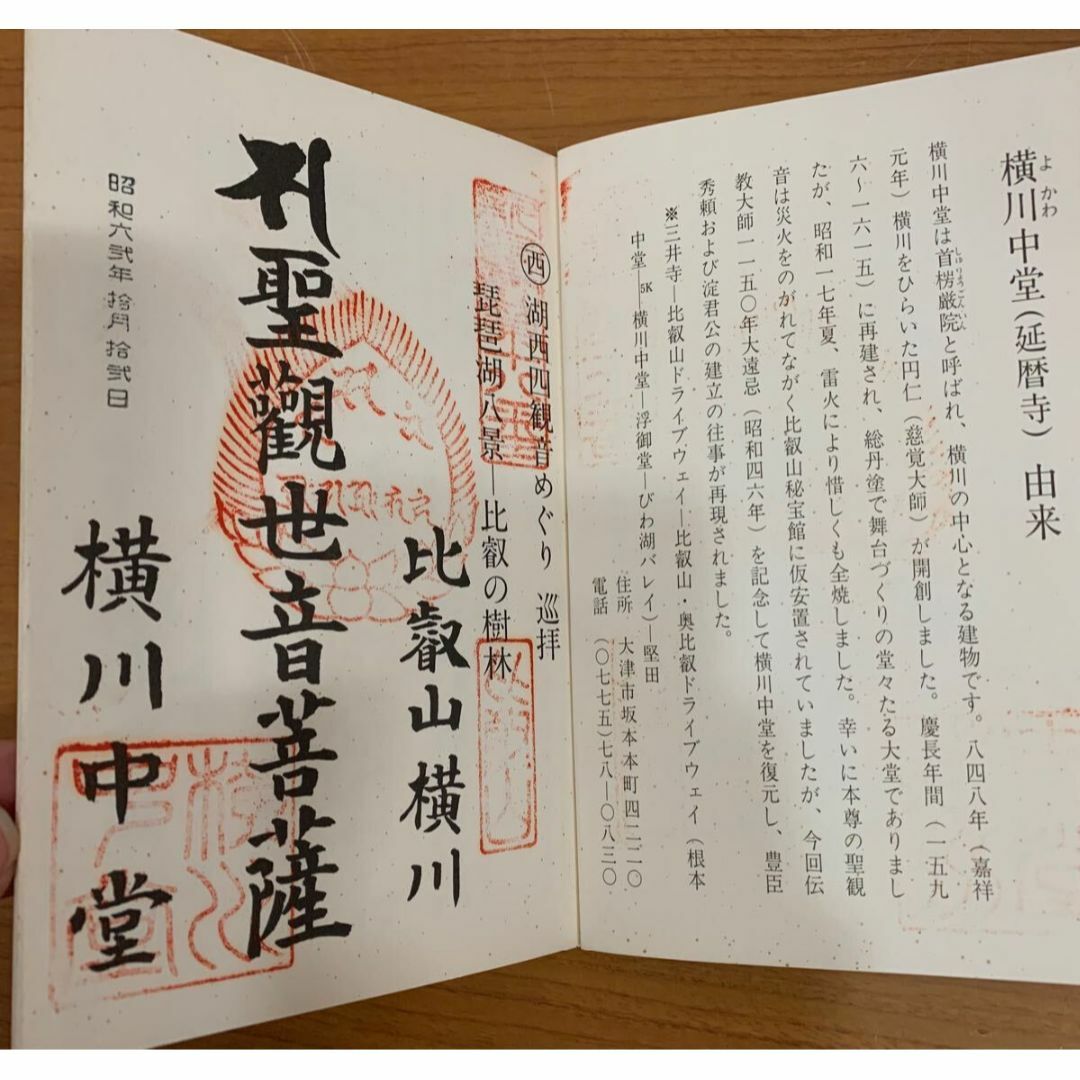 横川中堂(延暦寺) 由来
よかわ
横川中堂は首楞厳院と呼ばれ、横川の中心となる建物です。八四八年(嘉祥
しゅりょうごんいん
元年)横川をひらいた円仁(慈覚大師)が開創しました。慶長年間(一五九
六~一六一五)に再建され、総丹塗で舞台づくりの堂々たる大堂でありまし
たが、昭和一七年夏、雷火により惜しくも全焼しました。幸いに本尊の聖観
音は災火をのがれてながく比叡山秘宝館に仮安置されていましたが、今回伝
教大師一一五〇年大遠忌(昭和四六年)を記念して横川中堂を復元し、豊臣
秀頼および淀君公の建立の往事が再現されました。
※三井寺―比叡山ドライブウェイ―比叡山・奥比叡ドライブウェイ(根本
中堂―5K―横川中堂―浮御堂―びわ湖バレイ)―堅田
住所 大津市坂本本町四二二〇
電話 (〇七七五)七八―〇八三〇
西 湖西四観音めぐり 巡拝
琵琶湖八景―比叡の樹林
比叡山横川
聖觀世音菩薩
横川中堂
昭和六弐年拾月拾弐日